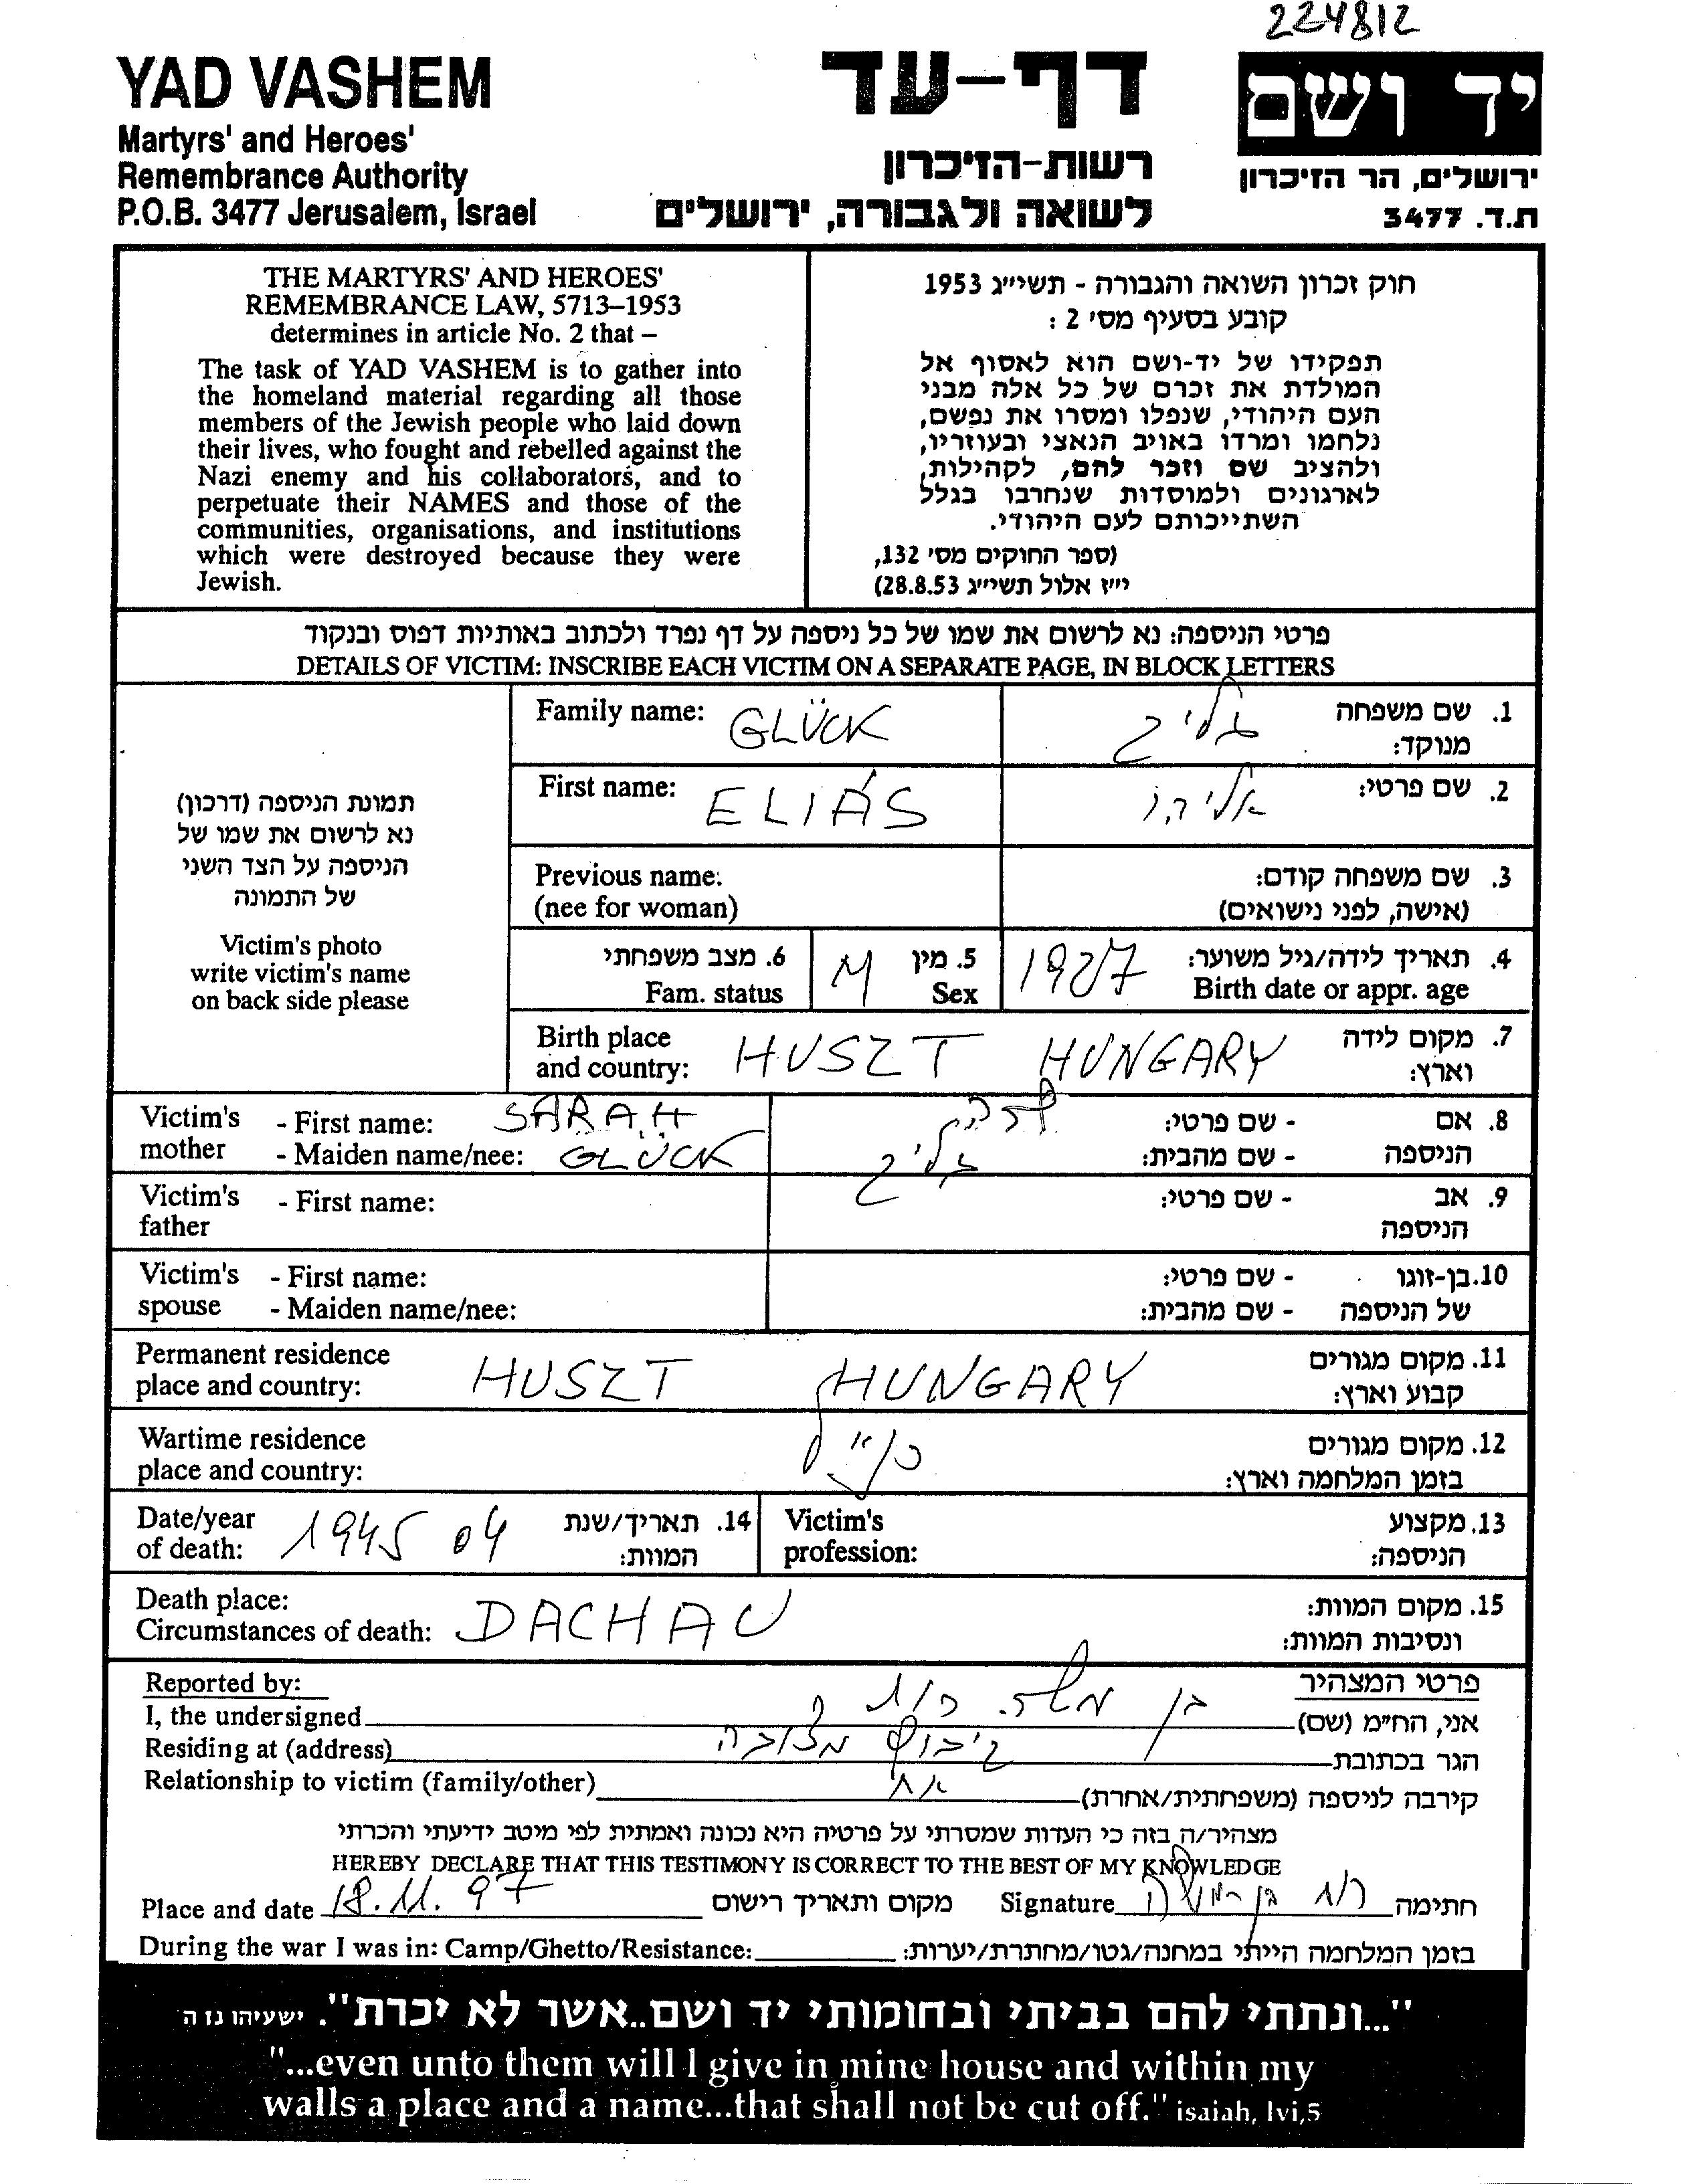 224812
YAD VASHEM
Martyrs' and Heroes'
Remembrance Authority
P.O.B. 3477 Jerusalem, Israel
דף-עד
רשות-הזיכרון
לשואה ולגבורה, ירושלים
יד ושם
ירושלים, הר הזיכרון
ת.ד. 3477
THE MARTYRS' AND HEROES'
REMEMBRANCE LAW, 5713–1953
determines in article No. 2 that –
The task of YAD VASHEM is to gather into
the homeland material regarding all those
members of the Jewish people who laid down
their lives, who fought and rebelled against the
Nazi enemy and his collaborators, and to
perpetuate their NAMES and those of the
communities, organisations, and institutions
which were destroyed because they were
Jewish.
חוק זכרון השואה והגבורה - תשי״ג 1953
קובע בסעיף מס' 2 :
תפקידו של יד-ושם הוא לאסוף אל
המולדת את זכרם של כל אלה מבני
העם היהודי, שנפלו ומסרו את נפשם,
נלחמו ומרדו באויב הנאצי ובעוזריו,
ולהציב שם וזכר להם, לקהילות,
לארגונים ולמוסדות שנחרבו בגלל
השתייכותם לעם היהודי.
(ספר החוקים מס' 132,
י״ז אלול תשי״ג 28.8.53)
פרטי הניספה: נא לרשום את שמו של כל ניספה על דף נפרד ולכתוב באותיות דפוס ובנקוד
DETAILS OF VICTIM: INSCRIBE EACH VICTIM ON A SEPARATE PAGE, IN BLOCK LETTERS
תמונת הניספה (דרכון)
נא לרשום את שמו של
הניספה על הצד השני
של התמונה
Victim's photo
write victim's name
on back side please
Family name: GLÜCK גליק 1. שם משפחה
מנוקד:
First name: ELIÁS אליהו 2. שם פרטי:
Previous name: 3. שם משפחה קודם:
(nee for woman) (אישה, לפני נישואים)
6. מצב משפחתי M 5. מין 1927 4. תאריך לידה/גיל משוער:
Fam. status Sex Birth date or appr. age
Birth place HUSZT HUNGARY 7. מקום לידה
and country: וארץ:
Victim's - First name: SARAH שרה - שם פרטי: 8. אם
mother - Maiden name/nee: GLÜCK גליק - שם מהבית: הניספה
Victim's - First name: - שם פרטי: 9. אב
father הניספה
Victim's - First name: - שם פרטי: 10. בן-זוגו
spouse - Maiden name/nee: - שם מהבית: של הניספה
Permanent residence HUSZT HUNGARY 11. מקום מגורים
place and country: קבוע וארץ:
Wartime residence כנ״ל 12. מקום מגורים
place and country: בזמן המלחמה וארץ:
Date/year 1945 04 14. תאריך/שנת Victim's 13. מקצוע
of death: המוות: profession: הניספה:
Death place: DACHAU 15. מקום המוות:
Circumstances of death: ונסיבות המוות:
Reported by: פרטי המצהיר
I, the undersigned בן משה אני, הח״מ (שם)
Residing at (address) קיבוץ מצובה הגר בכתובת
Relationship to victim (family/other) אח קירבה לניספה (משפחתית/אחרת)
מצהיר/ה בזה כי העדות שמסרתי על פרטיה היא נכונה ואמתית לפי מיטב ידיעתי והכרתי
HEREBY DECLARE THAT THIS TESTIMONY IS CORRECT TO THE BEST OF MY KNOWLEDGE
Place and date 18.11.97 מקום ותאריך רישום Signature חתימה
During the war I was in: Camp/Ghetto/Resistance: בזמן המלחמה הייתי במחנה/גטו/מחתרת/יערות:
"...ונתתי להם בביתי ובחומותי יד ושם..אשר לא יכרת". ישעיהו נז ה
"...even unto them will I give in mine house and within my
walls a place and a name...that shall not be cut off." isaiah, lvi,5